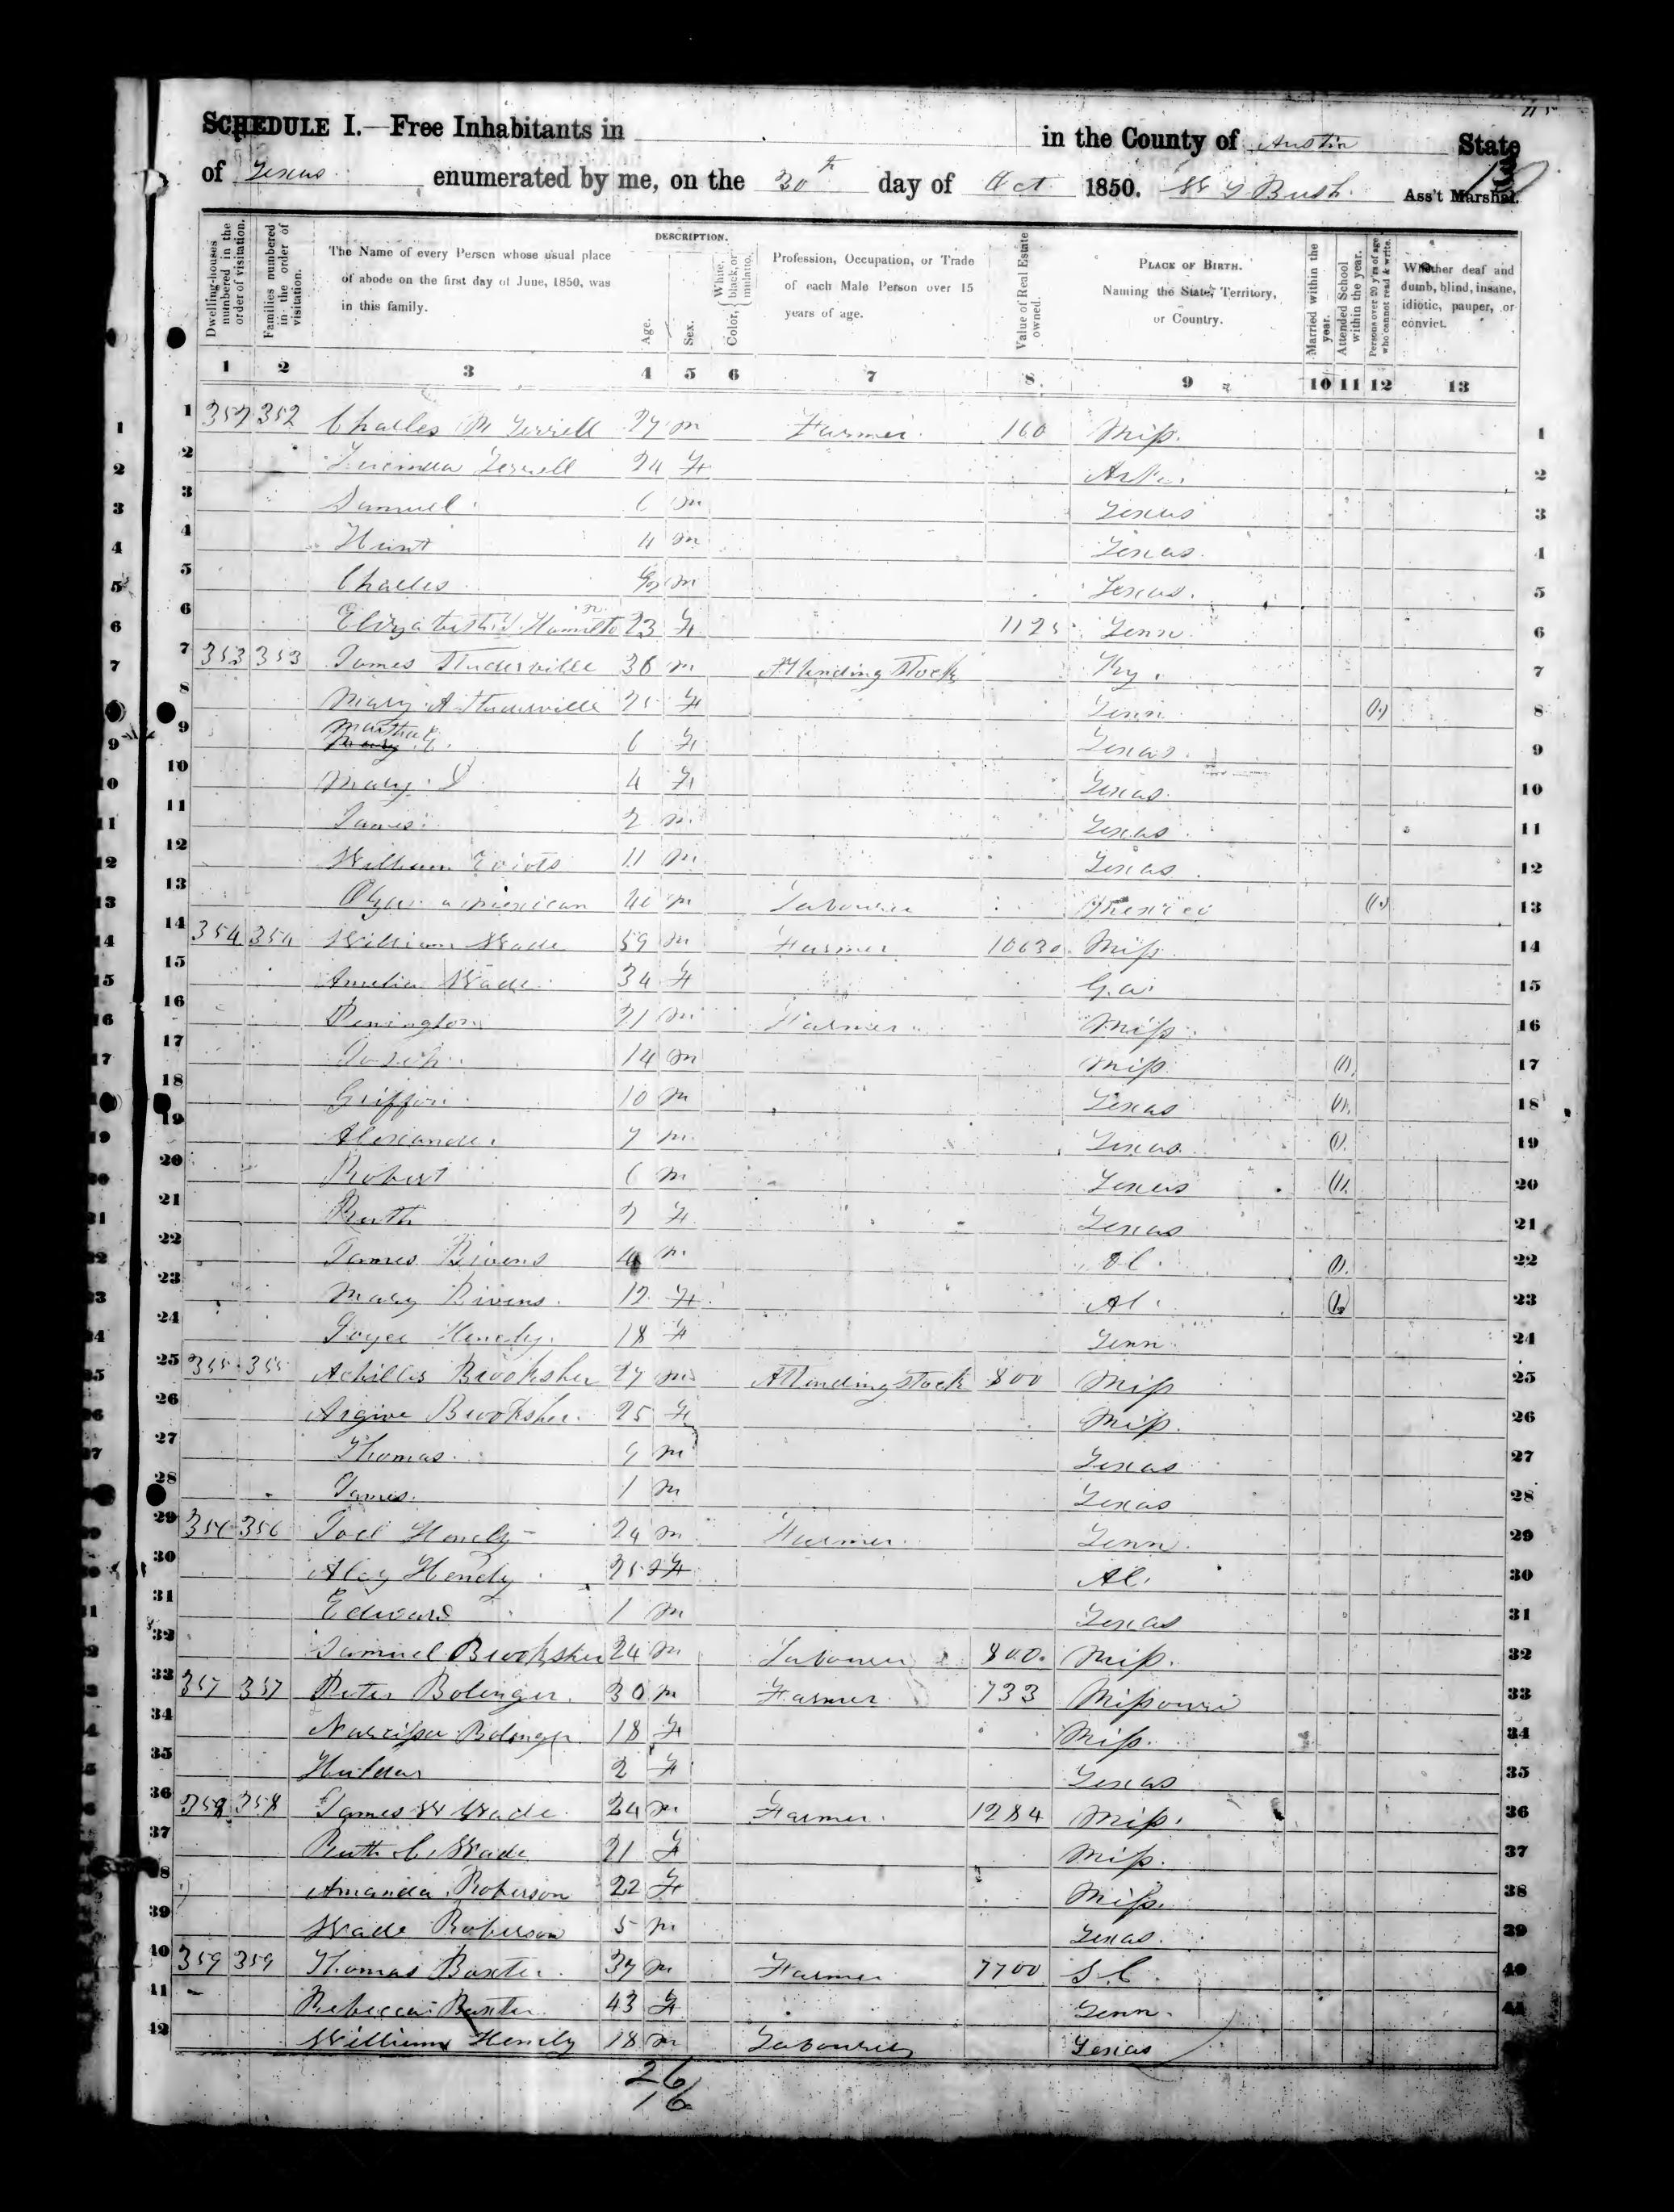 115
SCHEDULE I.—Free Inhabitants in in the County of Austin State
of Texas enumerated by me, on the 30th day of Oct 1850. Bush Ass't Marshal.
Dwelling-houses numbered in the order of visitation.
Families numbered in the order of visitation.
The Name of every Person whose usual place of abode on the first day of June, 1850, was in this family.
DESCRIPTION.
Age.
Sex.
Color, { White, black, or mulatto.
Profession, Occupation, or Trade of each Male Person over 15 years of age.
Value of Real Estate owned.
PLACE OF BIRTH. Naming the State, Territory, or Country.
Married within the year.
Attended School within the year.
Persons over 20 y'rs of age who cannot read & write.
Whether deaf and dumb, blind, insane, idiotic, pauper, or convict.
1 2 3 4 5 6 7 8 9 10 11 12 13
1 352 352 Charles M Terrell 27 m Farmer 160 Miss. 1
2 Lucinda Terrell 24 F Ark. 2
3 Samuel 6 m Texas 3
4 Hunt 4 m Texas 4
5 Charles m Texas. 5
6 Elizabeth Hamilton 23 F 1125 Tenn 6
7 353 353 James Studerville 36 m Attending Stock Ky. 7
8 Mary A Studerville 25 F Tenn (1) 8
9 Martha E. 6 F Texas. 9
10 Mary 4 F Texas. 10
11 James 2 m Texas 11
12 William 11 m Texas 12
13 a mexican 40 m Labourer Mexico (1) 13
14 354 354 William Wade 59 m Farmer 10630 Miss 14
15 Amelia Wade 34 F Ga. 15
16 Penington 21 m Farmer Miss 16
17 14 m Miss (1). 17
18 Griffin 10 m Texas (1). 18
19 Alexander 7 m Texas (1). 19
20 Robert 6 m Texas (1). 20
21 Ruth 2 F Texas 21
22 James Bivens m Al. (1). 22
23 Mary Bivens. 12 F Al. (1) 23
24 Joyce Hendy. 18 F Tenn 24
25 355 355 Achilles Brooksher 27 m Attending stock 800 Miss 25
26 Argine Brooksher. 25 F Miss. 26
27 Thomas. m Texas 27
28 James. 1 m Texas 28
29 356 356 Joel Hendy 24 m Farmer Tenn 29
30 Alcy Hendy 25 F Al. 30
31 Edward 1 m Texas 31
32 Samuel Brooksher 24 m Labourer 800. Miss. 32
33 357 357 Peter Bolinger. 30 m Farmer 733 Missouri 33
34 Narcissa Bolinger 18 F Miss. 34
35 Huldar 2 F Texas 35
36 358 358 James W Wade 24 m Farmer. 1284 Miss. 36
37 Ruth C. Wade 21 F Miss. 37
38 Amanda Roberson 22 F Miss. 38
39 Wade Roberson 5 m Texas. 39
40 359 359 Thomas Baxter 37 m Farmer 7700 S.C. 40
41 Rebecca Baxter 43 F Tenn. 41
42 William Hendy 18 m Labourer Texas
26
16